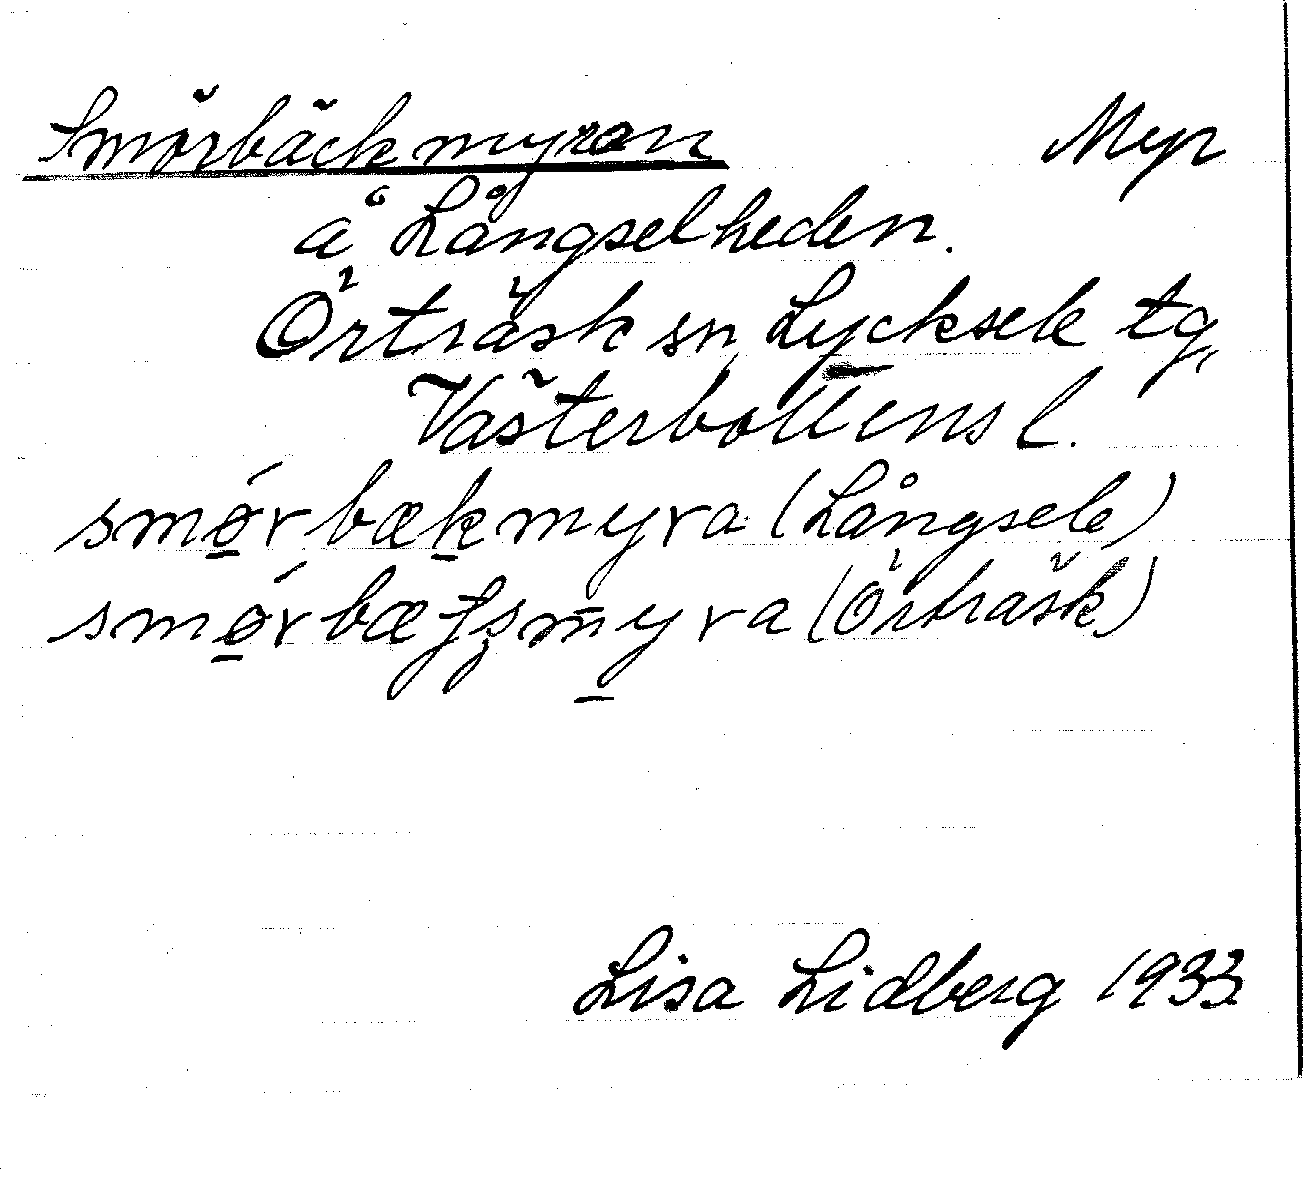 Smörbäckmyran Myr
å Långselheden.
Örträsk sn, Lycksele tg,
Västerbottens l.
smø̱rbæḵmyra (Långsele)
smø̱rbæʃsmy̱ra (Örträsk)
Lisa Lidberg 1933